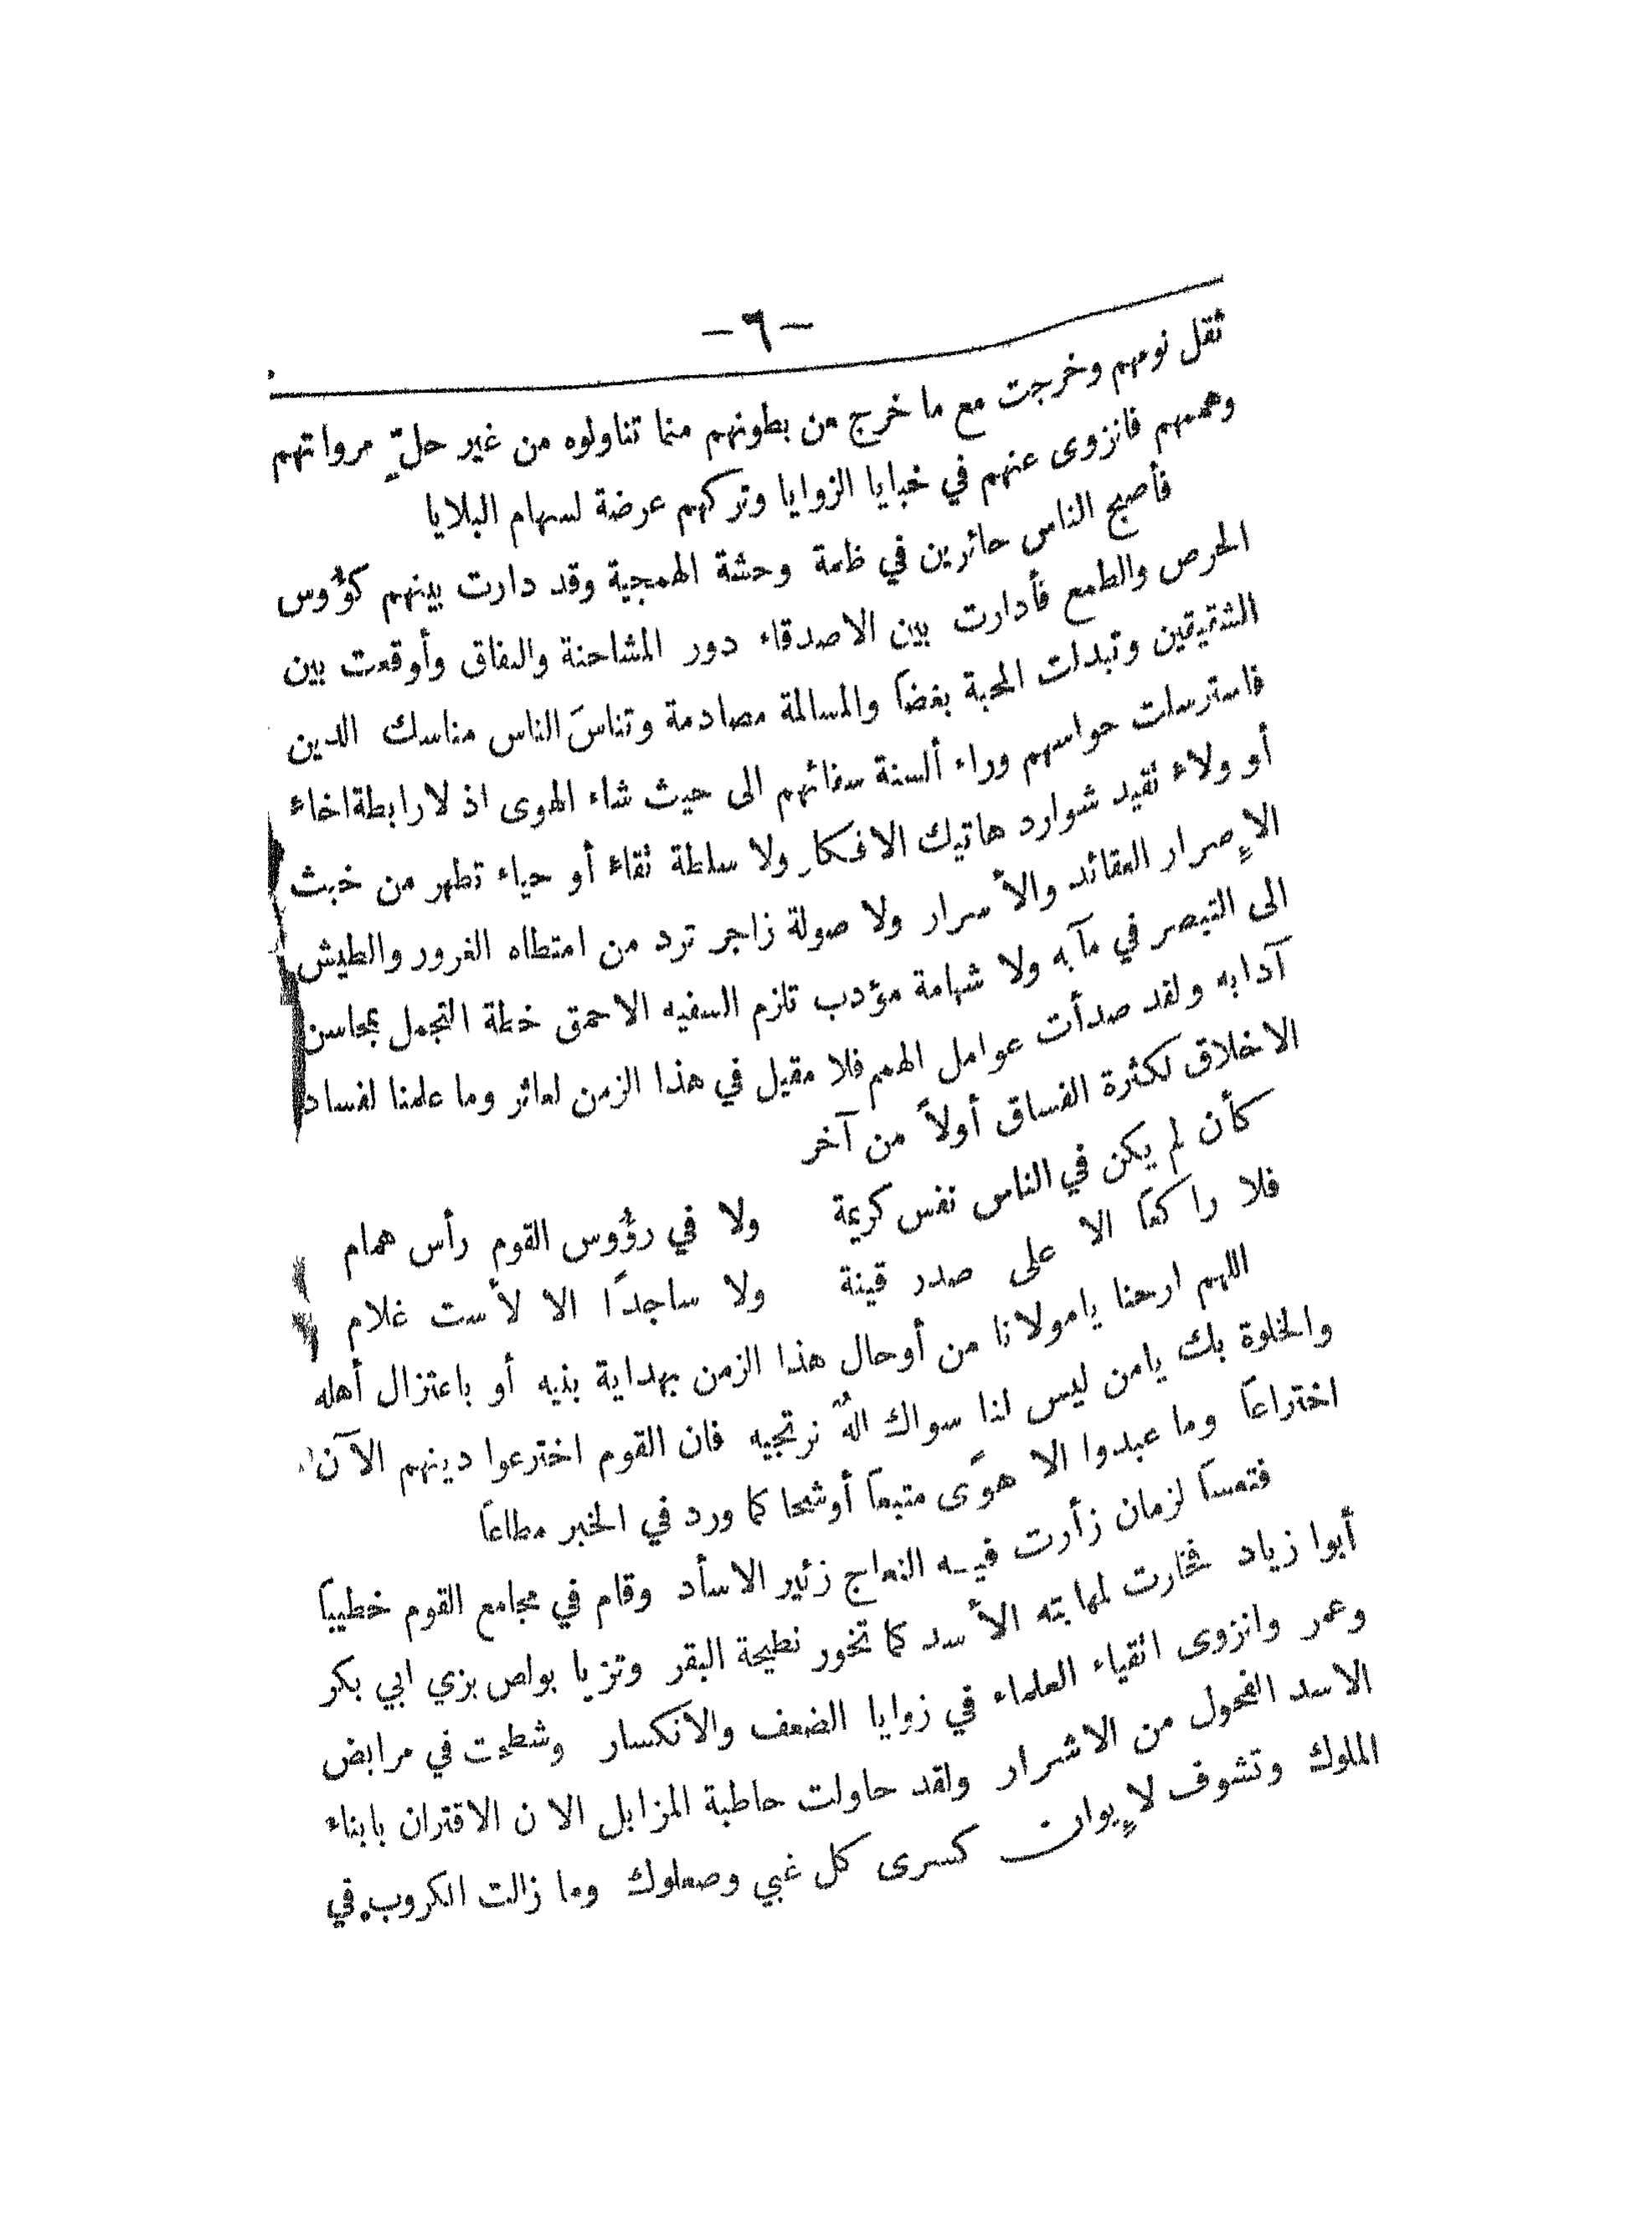 -٦-
ثقل نومهم وخرجت مع ما خرج من بطونهم مما تناولوه من غير حلٍّ مرواتهم
وهممهم فانزوى عنهم في خبايا الزوايا وتركهم عرضة لسهام البلايا
فأصبح الناس حائرين في ظلمة وحشة الهمجية وقد دارت بينهم كؤُوس
الحرص والطمع فأدارت بين الاصدقاء دور المشاحنة والنفاق وأوقعت بين
الشقيقين وتبدلت المحبة بغضاً والمسالمة مصادمة وتناسَ الناس مناسك الدين
فاسترسلت حواسهم وراء ألسنة سفائهم الى حيث شاء الهوى اذ لا رابطة اخاء
أو ولاء تقيد شوارد هاتيك الافكار ولا سلطة تقاء أو حياء تطهر من خبث
الإصرار العقائد والأسرار ولا صولة زاجر ترد من امتطاه الغرور والطيش
الى التبصر في مآبه ولا شهامة مؤدب تلزم السفيه الاحمق خطة التجمل بمحاسن
آدابه ولقد صدأت عوامل الهمم فلا مقيل في هذا الزمن لعاثر وما علمنا لفساد
الاخلاق لكثرة الفساق أولاً من آخر
كأن لم يكن في الناس نفس كريمة ولا في رؤُوس القوم رأس همام
فلا راكعًا الا على صدر قينة ولا ساجدًا الا لأست غلام
اللهم ارحنا يامولانا من أوحال هذا الزمن بهداية بنيه أو باعتزال أهله
والخلوة بك يامن ليس لنا سواك الهٌ نرتجيه فان القوم اخترعوا دينهم الآن
اختراعاً وما عبدوا الا هوًى متبعاً أوشحا كما ورد في الخبر مطاعاً
فتعساً لزمان زأرت فيه النعاج زئير الاسأد وقام في مجامع القوم خطيباً
أبوا زياد فخارت لمهابته الأسد كما تخور نطيحة البقر وتزيا بولص بزي ابي بكر
وعمر وانزوى اتقياء العلماء في زوايا الضعف والانكسار وشطحت في مرابض
الاسد الفحول من الاشرار ولقد حاولت حاطبة المزابل الان الاقتران بابناء
الملوك وتشوف لإيوان كسرى كل غبي وصعلوك وما زالت الكروب في